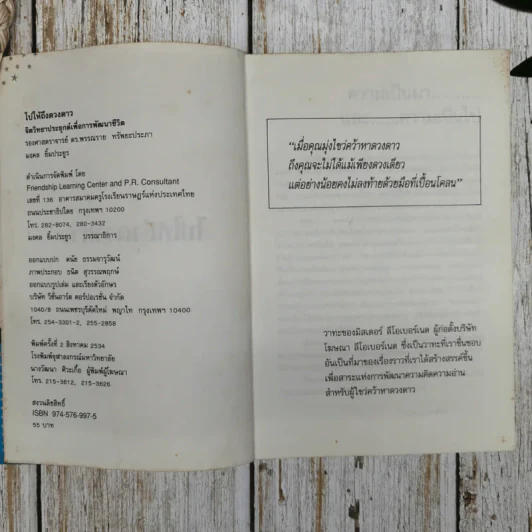 ไปให้ถึงดวงดาว
จิตวิทยาประยุกต์เพื่อการพัฒนาชีวิต
รองศาสตราจารย์ ดร.พรรณราย ทรัพยะประภา
มงคล ยิ้มประยูร
ดำเนินการจัดพิมพ์ โดย
Friendship Learning Center and P.R. Consultant
เลขที่ 136 อาคารสมาคมครูโรงเรียนราษฎร์แห่งประเทศไทย
ถนนประชาธิปไตย กรุงเทพฯ 10200
โทร. 282-8074, 282-3432
มงคล ยิ้มประยูร บรรณาธิการ
ออกแบบปก ดนัย ธรรมจารุวัฒน์
ภาพประกอบ ธนิต สุวรรณพฤกษ์
ออกแบบรูปเล่ม และเรียงตัวอักษร
บริษัท วีชั่นอาร์ต คอร์ปอเรชั่น จำกัด
1040/8 ถนนเพชรบุรีตัดใหม่ พญาไท กรุงเทพฯ 10400
โทร. 254-3301-2, 255-2858
พิมพ์ครั้งที่ 2 สิงหาคม 2534
โรงพิมพ์จุฬาลงกรณ์มหาวิทยาลัย
นางวัฒนา ศิวะเกื้อ ผู้พิมพ์ผู้โฆษณา
โทร. 215-3612, 215-3626
สงวนลิขสิทธิ์
ISBN 974-576-997-5
55 บาท
“เมื่อคุณมุ่งไขว่คว้าหาดวงดาว
ถึงคุณจะไม่ได้แม้เพียงดวงเดียว
แต่อย่างน้อยคงไม่ลงท้ายด้วยมือที่เปื้อนโคลน”
วาทะของมิสเตอร์ ลีโอเบอร์เนต ผู้ก่อตั้งบริษัท
โฆษณา ลีโอเบอร์เนต ซึ่งเป็นวาทะที่เราชื่นชอบ
อันเป็นที่มาของเรื่องราวที่เราได้สร้างสรรค์ขึ้น
เพื่อสาระแห่งการพัฒนาความคิดความอ่าน
สำหรับผู้ไขว่คว้าหาดวงดาว